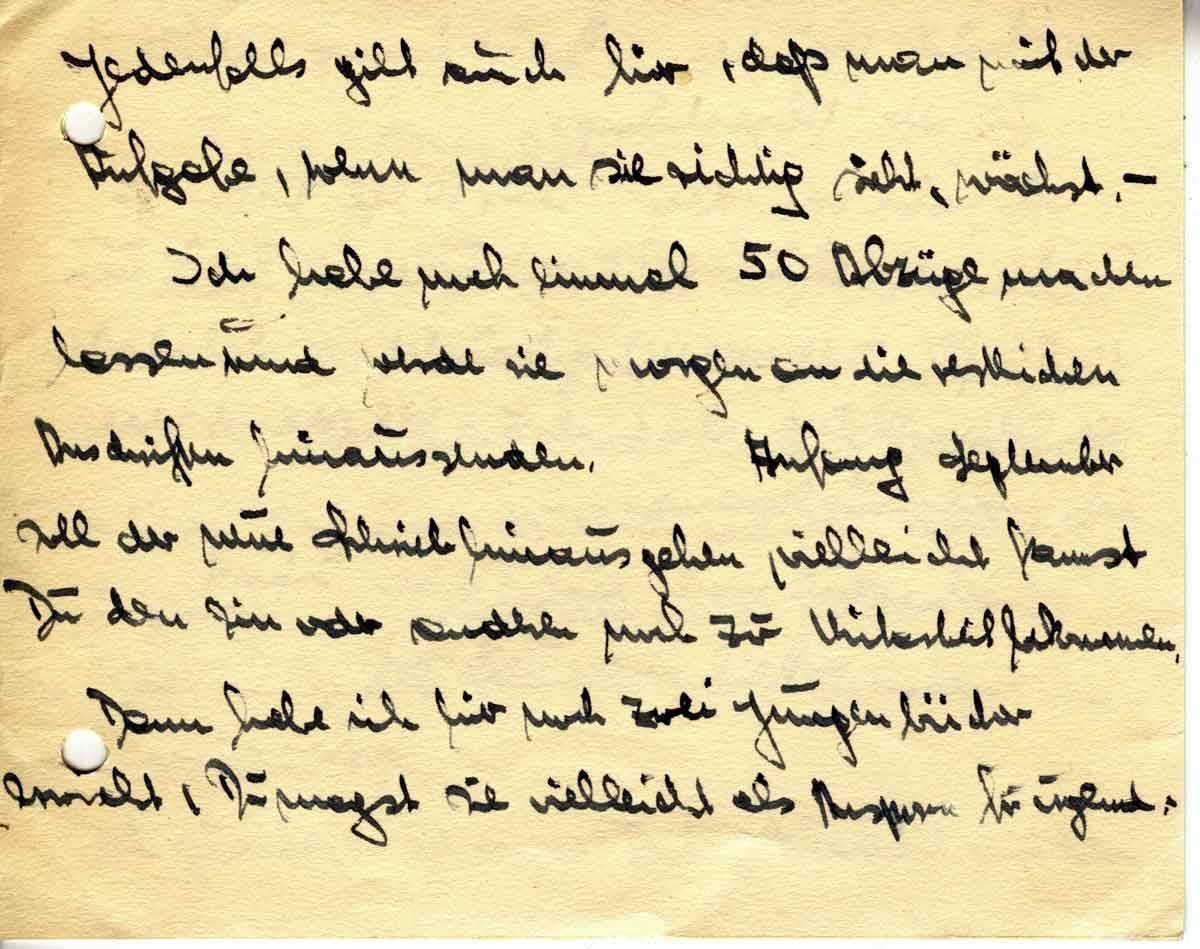 Jedenfalls gilt auch hier, daß man mit der
Aufgabe, wenn man sie richtig sieht, wächst. –
Ich habe noch einmal 50 Abzüge machen
lassen und werde sie morgen an die restlichen
Anschriften hinaussenden. Anfang September
soll der neue hinausgehen vielleicht kannst
Du den ein oder anderen noch zur Mitarbeit bekommen.
Dann habe ich hier noch zwei Jungenbücher
, Du magst sie vielleicht als für irgend-